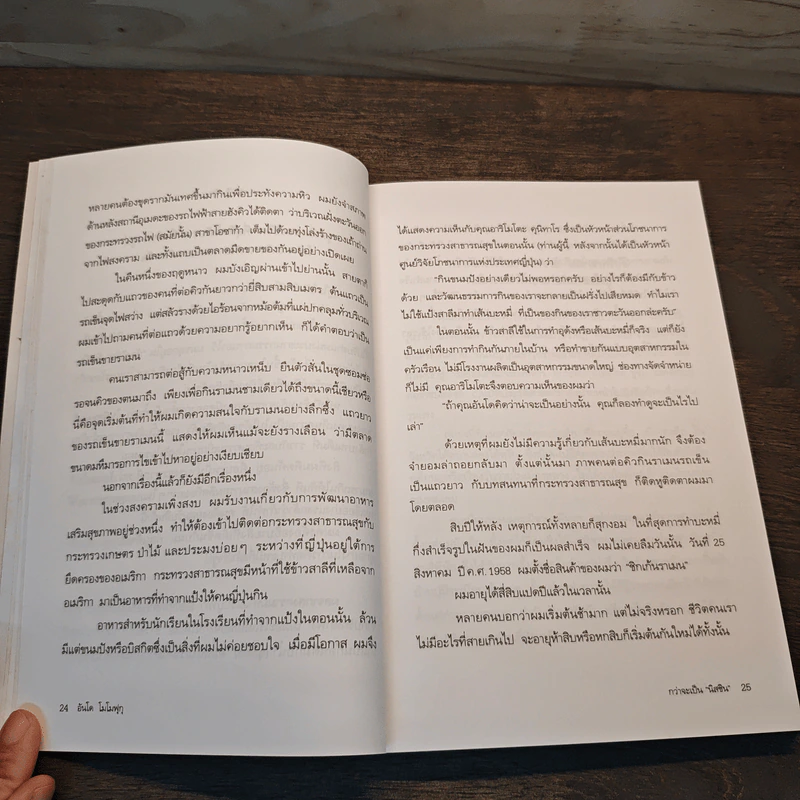 หลายคนต้องขุดรากมันเทศขึ้นมากินเพื่อประทังความหิว ผมยังจำสภาพ
ด้านหลังสถานีอุเมดะของรถไฟฟ้าสายฮังคิวได้ติดตา ว่าบริเวณฝั่งตะวันออก
ของกระทรวงรถไฟ (สมัยนั้น) สาขาโอซาก้า เต็มไปด้วยทุ่งโล่งร้างของเถ้าถ่าน
จากไฟสงคราม และทั้งแถบเป็นตลาดมืดขายของกันอยู่อย่างเปิดเผย
ในคืนหนึ่งของฤดูหนาว ผมบังเอิญผ่านเข้าไปย่านนั้น สายตาก็
ไปสะดุดกับแถวของคนที่ต่อคิวกันยาวกว่ายี่สิบสามสิบเมตร ต้นแถวเป็น
รถเข็นจุดไฟสว่าง แต่สลัวรางด้วยไอร้อนจากหม้อต้มที่แผ่ปกคลุมทั่วบริเวณ
ผมเข้าไปถามคนที่ต่อแถวด้วยความอยากรู้อยากเห็น ก็ได้คำตอบว่าเป็น
รถเข็นขายราเมน
คนเราสามารถต่อสู้กับความหนาวเหน็บ ยืนตัวสั่นในชุดซอมซ่อ
รอจนคิวของตนมาถึง เพียงเพื่อกินราเมนชามเดียวได้ถึงขนาดนี้เชียวหรือ
นี่คือจุดเริ่มต้นที่ทำให้ผมเกิดความสนใจกับราเมนอย่างลึกซึ้ง แถวยาว
ของรถเข็นขายราเมนนี้ แสดงให้ผมเห็นแม้จะยังรางเลือน ว่ามีตลาด
ขนาดมหึมารอการไขเข้าไปหาอยู่อย่างเงียบเชียบ
นอกจากเรื่องนี้แล้วก็ยังมีอีกเรื่องหนึ่ง
ในช่วงสงครามเพิ่งสงบ ผมรับงานเกี่ยวกับการพัฒนาอาหาร
เสริมสุขภาพอยู่ช่วงหนึ่ง ทำให้ต้องเข้าไปติดต่อกระทรวงสาธารณสุขกับ
กระทรวงเกษตร ป่าไม้ และประมงบ่อยๆ ระหว่างที่ญี่ปุ่นอยู่ใต้การ
ยึดครองของอเมริกา กระทรวงสาธารณสุขมีหน้าที่ใช้ข้าวสาลีที่เหลือจาก
อเมริกา มาเป็นอาหารที่ทำจากแป้งให้คนญี่ปุ่นกิน
อาหารสำหรับนักเรียนในโรงเรียนที่ทำจากแป้งในตอนนั้น ล้วน
มีแต่ขนมปังหรือบิสกิตซึ่งเป็นสิ่งที่ผมไม่ค่อยชอบใจ เมื่อมีโอกาส ผมจึง
24 อันโด โมโมฟุกุ
ได้แสดงความเห็นกับคุณอาริโมโตะ คุนิทาโร ซึ่งเป็นหัวหน้าส่วนโภชนาการ
ของกระทรวงสาธารณสุขในตอนนั้น (ท่านผู้นี้ หลังจากนั้นได้เป็นหัวหน้า
ศูนย์วิจัยโภชนาการแห่งประเทศญี่ปุ่น) ว่า
“กินขนมปังอย่างเดียวไม่พอหรอกครับ อย่างไรก็ต้องมีกับข้าว
ด้วย และวัฒนธรรมการกินของเราจะกลายเป็นฝรั่งไปเสียหมด ทำไมเรา
ไม่ใช้แป้งสาลีมาทำเส้นบะหมี่ ที่เป็นของกินของเราชาวตะวันออกล่ะครับ”
ในตอนนั้น ข้าวสาลีใช้ในการทำอุด้งหรือเส้นบะหมี่ก็จริง แต่ก็ยัง
เป็นแค่เพียงการทำกินกันภายในบ้าน หรือทำขายกันแบบอุตสาหกรรมใน
ครัวเรือน ไม่มีโรงงานผลิตเป็นอุตสาหกรรมขนาดใหญ่ ช่องทางจัดจำหน่าย
ก็ไม่มี คุณอาริโมโตะจึงตอบความเห็นของผมว่า
“ถ้าคุณอันโดคิดว่าน่าจะเป็นอย่างนั้น คุณก็ลองทำดูจะเป็นไรไป
เล่า”
ด้วยเหตุที่ผมยังไม่มีความรู้เกี่ยวกับเส้นบะหมี่มากนัก จึงต้อง
จำยอมล่าถอยกลับมา ตั้งแต่นั้นมา ภาพคนต่อคิวกินราเมนรถเข็น
เป็นแถวยาว กับบทสนทนาที่กระทรวงสาธารณสุข ก็ติดหูติดตาผมมา
โดยตลอด
สิบปีให้หลัง เหตุการณ์ทั้งหลายก็สุกงอม ในที่สุดการทำบะหมี่
กึ่งสำเร็จรูปในฝันของผมก็เป็นผลสำเร็จ ผมไม่เคยลืมวันนั้น วันที่ 25
สิงหาคม ปี ค.ศ. 1958 ผมตั้งชื่อสินค้าของผมว่า “ชิกเก้นราเมน”
ผมอายุได้สี่สิบแปดปีแล้วในเวลานั้น
หลายคนบอกว่าผมเริ่มต้นช้ามาก แต่ไม่จริงหรอก ชีวิตคนเรา
ไม่มีอะไรที่สายเกินไป จะอายุห้าสิบหรือหกสิบก็เริ่มต้นกันใหม่ได้ทั้งนั้น
กว่าจะเป็น “นิสชิน” 25